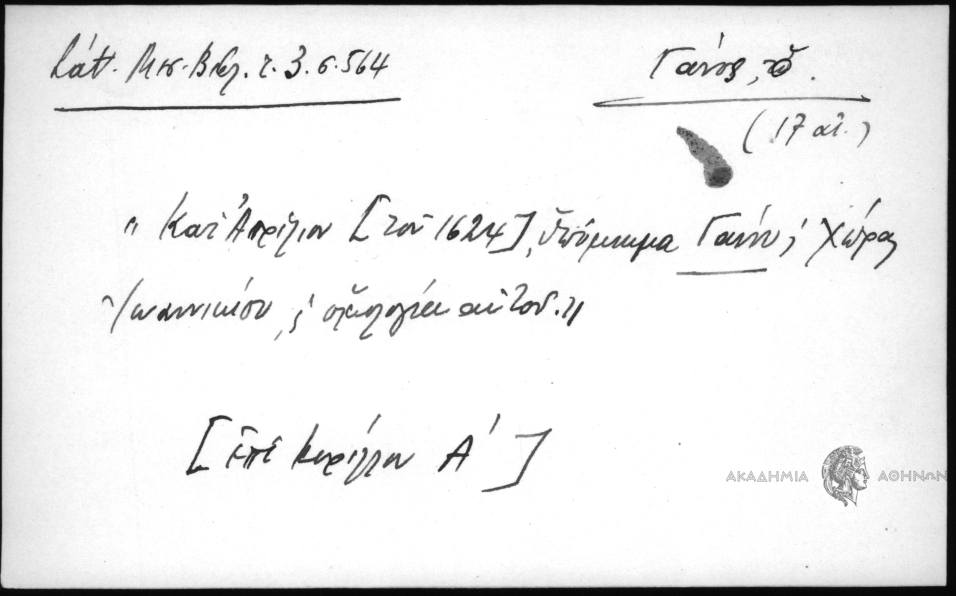 Σάθ. Μεσ. Βιβλ. τ. 3. σ. 564
Γάνος, τό.
(17 αἰ.)
" Κατ' Ἀπρίλιον [τοῦ 1624], ὑπόμνημα Γάνου ϛ Χώρας
Ἰωαννικίου, ϛ ὁμολογία αὐτοῦ."
[Ἐπὶ Κυρίλλου Α']
ΑΚΑΔΗΜΙΑ ΑΘΗΝΩΝ